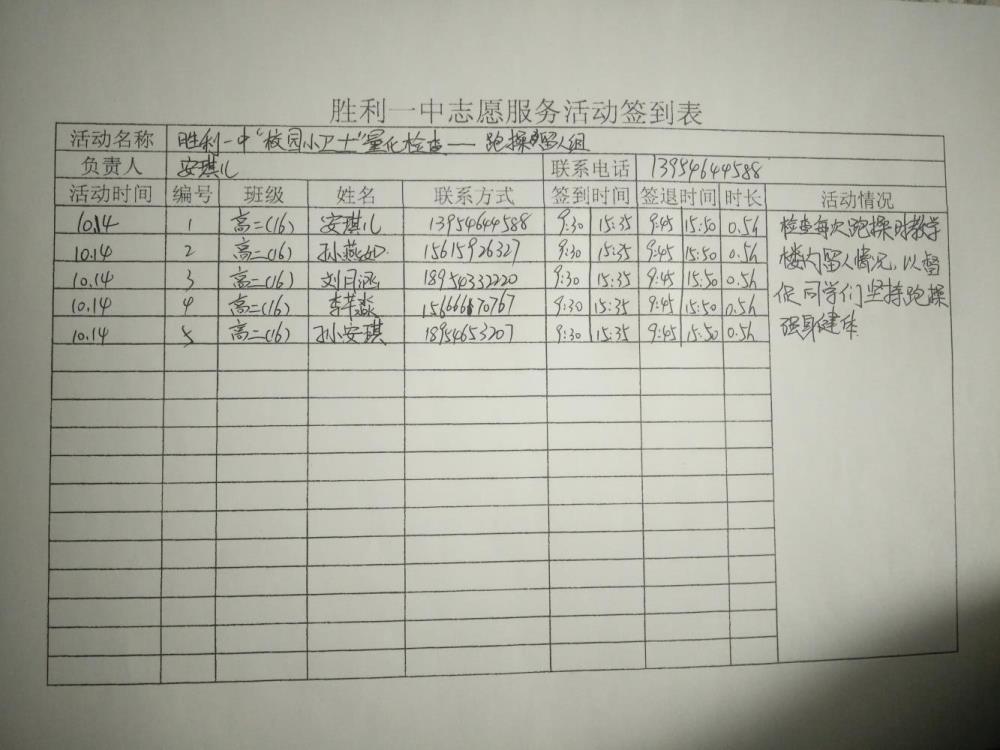 胜利一中志愿服务活动签到表
活动名称 胜利一中“校园小卫士”量化检查——跑操留人组
负责人 安琪儿 联系电话 13954644588
活动时间 编号 班级 姓名 联系方式 签到时间 签退时间 时长 活动情况
10.14 1 高二(16) 安琪儿 13954644588 9:30 15:35 9:45 15:50 0.5h 检查每次跑操时教学
10.14 2 高二(16) 孙燕如 15615926327 9:30 15:35 9:45 15:50 0.5h 楼内留人情况,以督
10.14 3 高二(16) 刘日涵 18954332220 9:30 15:35 9:45 15:50 0.5h
10.14 4 高二(16) 李芊淼 15666670767 9:30 15:35 9:45 15:50 0.5h 促同学们坚持跑操
10.14 5 高二(16) 孙安琪 18954653207 9:30 15:35 9:45 15:50 0.5h 强身健体